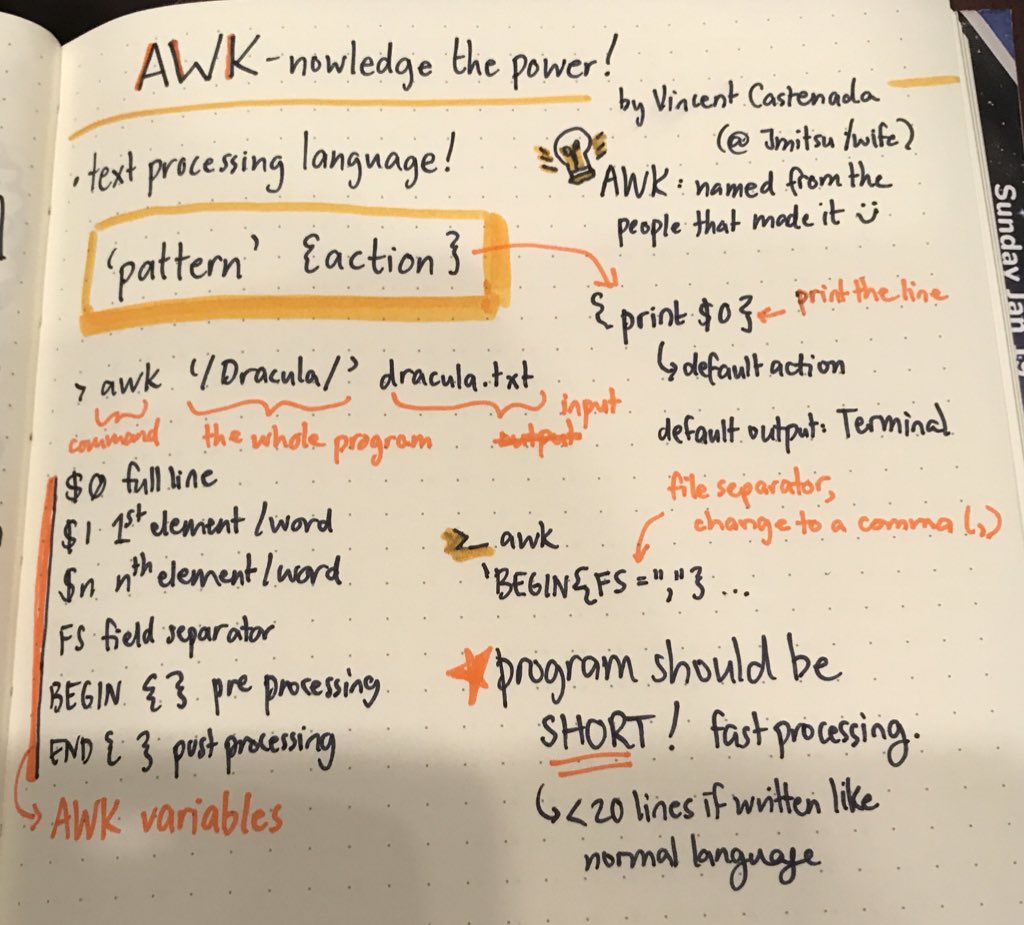 AWK-nowledge the power!
by Vincent Castenada
(@ Jmitsu/wife)
• text processing language!
AWK: named from the
people that made it
'pattern' {action}
{print $0} ← print the line
↳ default action
> awk '/Dracula/' dracula.txt
command the whole program output input
default output: Terminal
$0 full line
$1 1st element/word
$n nth element/word
FS field separator
BEGIN { } pre processing
END { } post processing
AWK variables
file separator,
change to a comma (,)
>_ awk
'BEGIN{FS=","} ...
program should be
SHORT! fast processing.
↳ <20 lines if written like
normal language
Sunday Jan